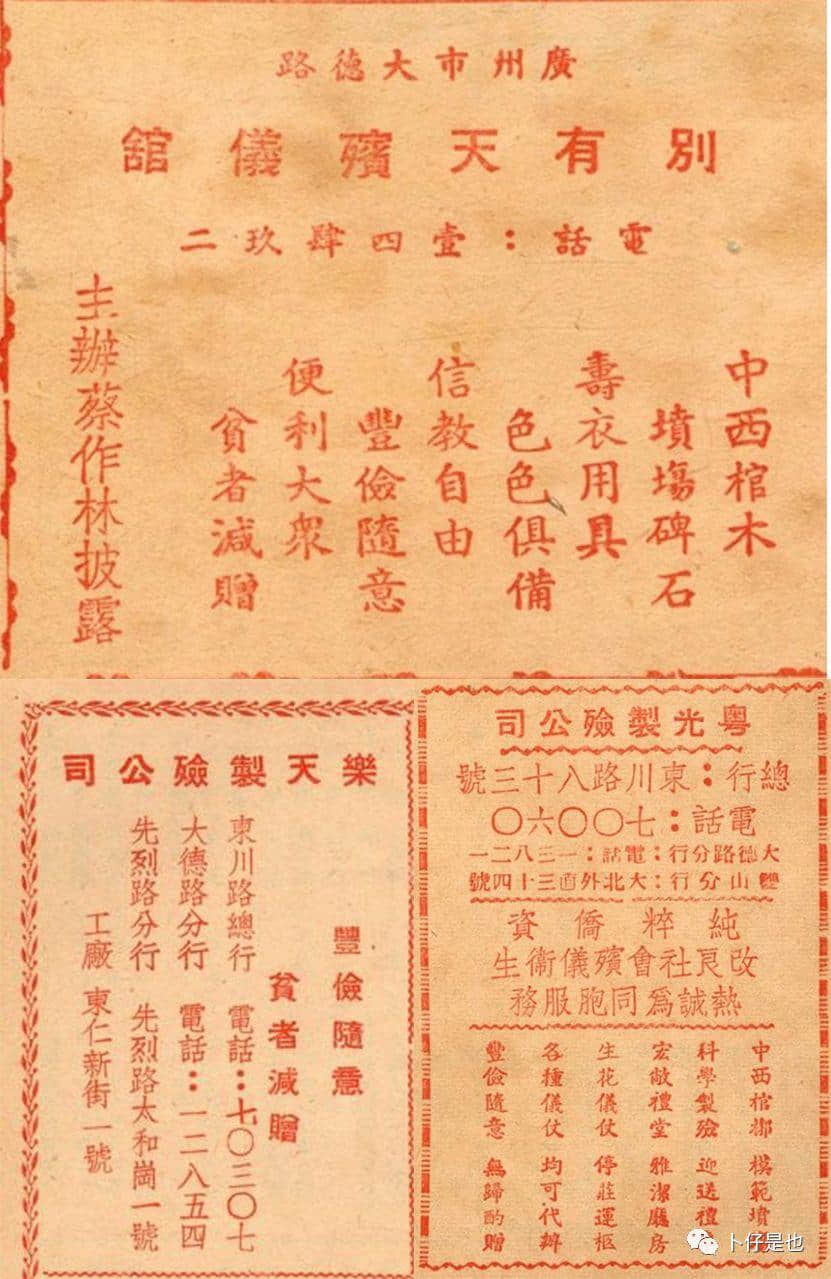 廣州市大德路
別有天殯儀舘
電話：壹四肆玖二
中西棺木
墳塲碑石
壽衣用具
色色俱備
信教自由
豐儉隨意
便利大衆
貧者減贈
主辦蔡作林披露
樂天製殮公司
豐儉隨意
貧者減贈
東川路總行 電話：七〇三〇七
大德路分行 電話：一二八五四
先烈路分行 先烈路太和崗一號
工廠 東仁新街一號
粵光製殮公司
總行：東川路八十三號
電話：七〇〇六〇
大德路分行：電話：一三八二一
山分行：大北外直三十四號
純粹僑資
改良社會殯儀衞生
熱誠爲同胞服務
中西棺槨 模範墳
科學製殮 迎送禮
宏敞禮堂 雅潔廳房
生花儀仗 停莊運柩
各種儀仗 均可代辦
豐儉隨意 無歸酌贈
卜仔是也